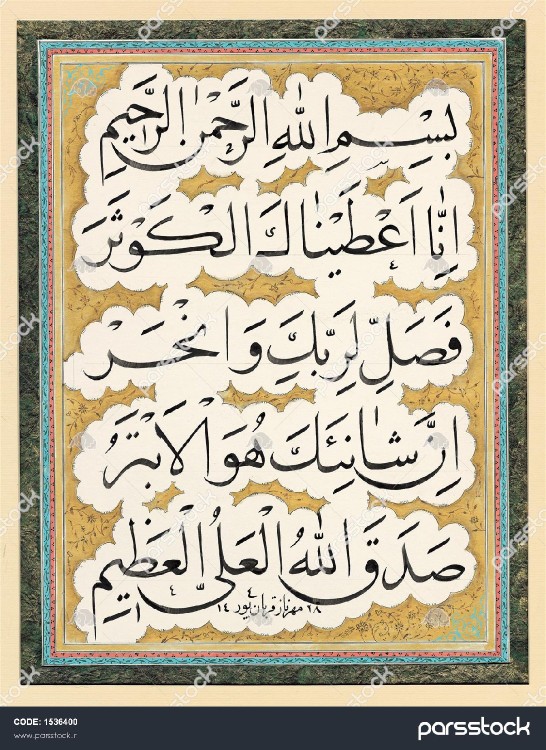 بِسْمِ اللهِ الرَّحْمنِ الرَّحِيمِ
اِنَّا اَعْطَيْنَاكَ الْكَوْثَرَ
فَصَلِّ لِرَبِّكَ وَانْحَرْ
اِنَّ شَانِئَكَ هُوَ الْاَبْتَرُ
صَدَقَ اللهُ الْعَلِيُّ الْعَظِيمُ
مهرناز قربان‌پور
CODE: 1536400
www.parsstock.ir
parsstock